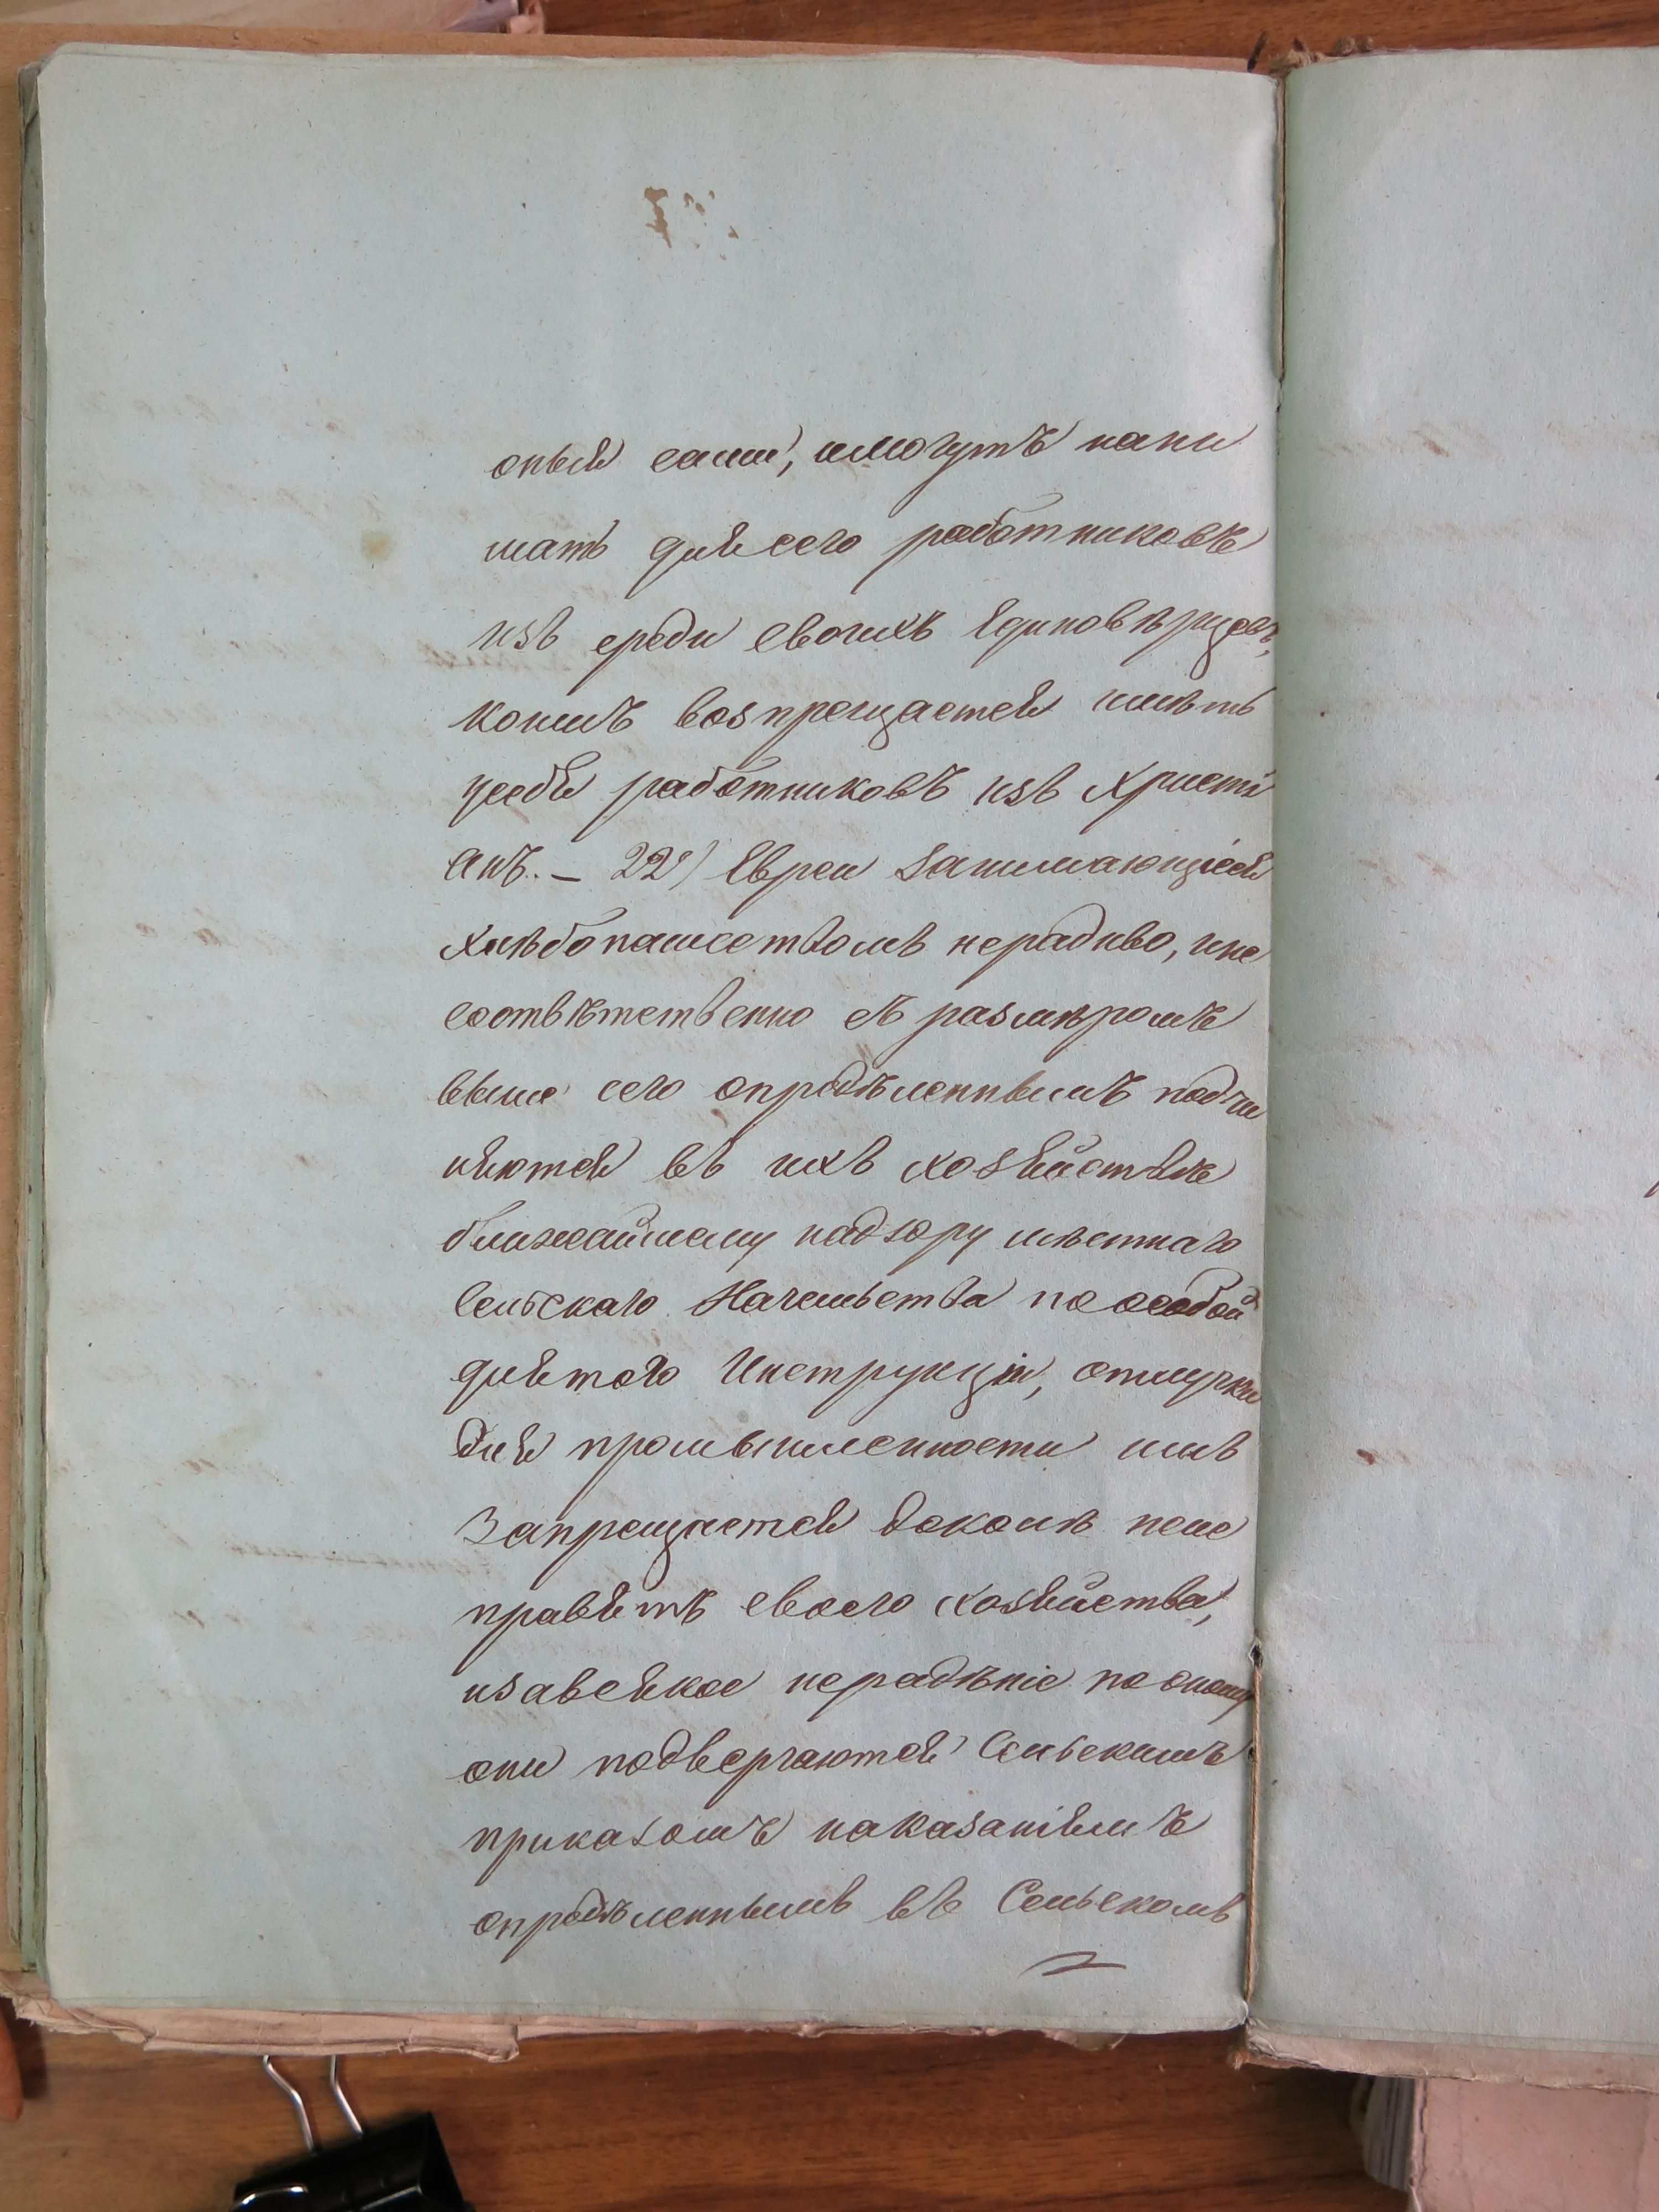 оныя сами, имогутъ нани
мать длясего работниковъ
изъ среди своихъ Единовѣрцовъ,
коимъ воспрещается имѣть
усебя работниковъ изъ Христі
анъ. – 22е) Евреи занимающіеся
хлѣбопашествомъ нерадиво, ине
соотвѣтственно съ размѣромъ
выше сего опредѣленнымъ подчи
няются въ ихъ хозяйствѣ
ближайшему надзору мѣстнаго
Сельскаго Начальства поособой
длятого Инструкціи, отлучки
для промышленности имъ
запрещается доколѣ неис
правятъ своего хозяйства,
изавсякое нерадѣніе пооному
они подвергаются Сельскимъ
приказомъ наказаніямъ
опредѣленнымъ въ Сельскомъ